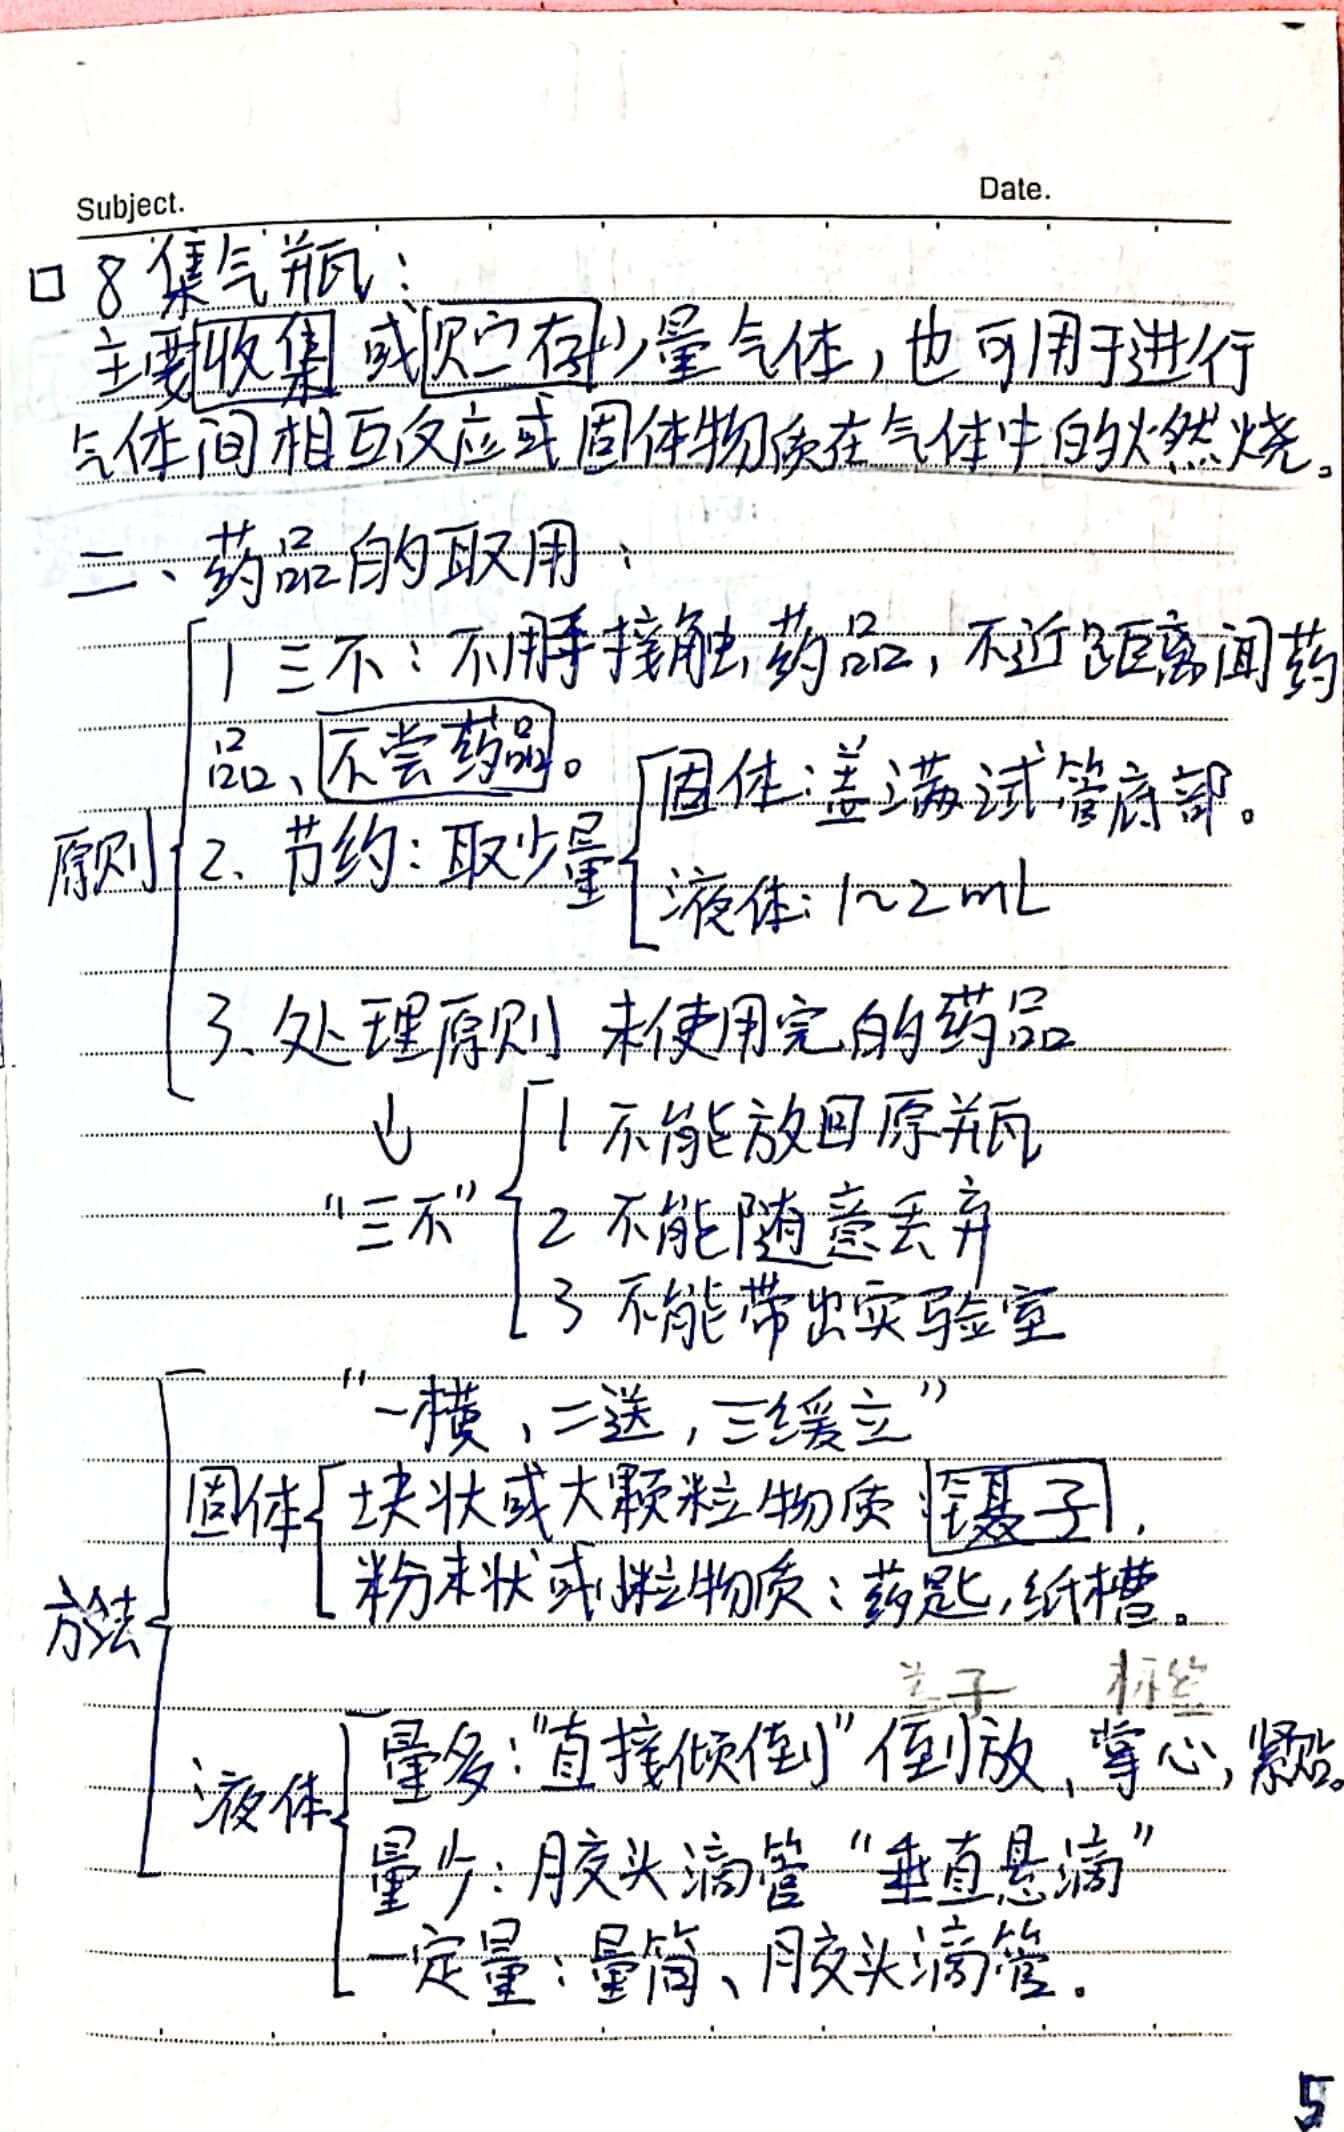 Subject.
Date.
口 8 集气瓶:
主要收集或贮存少量气体,也可用于进行
气体间相互反应或固体物质在气体中的燃烧。
二、药品的取用:
原则
1 三不:不用手接触药品,不近距离闻药
品、不尝药品。
2、节约:取少量
固体:盖满试管底部。
液体:1~2mL
3、处理原则 未使用完的药品
↓
“三不”
1 不能放回原瓶
2 不能随意丢弃
3 不能带出实验室
方法
“一横,二送,三缓立”
固体
块状或大颗粒物质:镊子.
粉末状或小粒物质:药匙,纸槽。
盖子 标签
液体
量多:“直接倾倒”倒放、掌心,紧贴。
量少:胶头滴管“垂直悬滴”
一定量:量筒、胶头滴管。
5